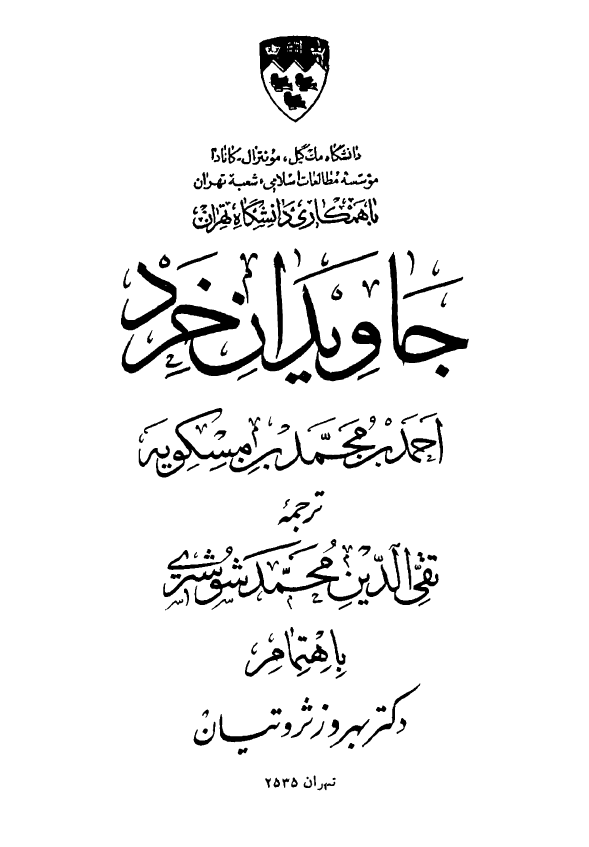 دانشگاه مك گیل، مونترال-کانادا
مؤسسهٔ مطالعات اسلامی، شعبهٔ تهران
با همکاری دانشگاه تهران
جَاوِیدَانِ خِرَد
اَحمَد بْن مُحَمَّد بْن مِسْکِویَه
ترجمهٔ
تَقِیّ الدّینِ مُحَمَّد شُوشْتَری
بِاِهْتِمَامِ
دکتر بهروز ثروتیان
تهران ۲۵۳۵